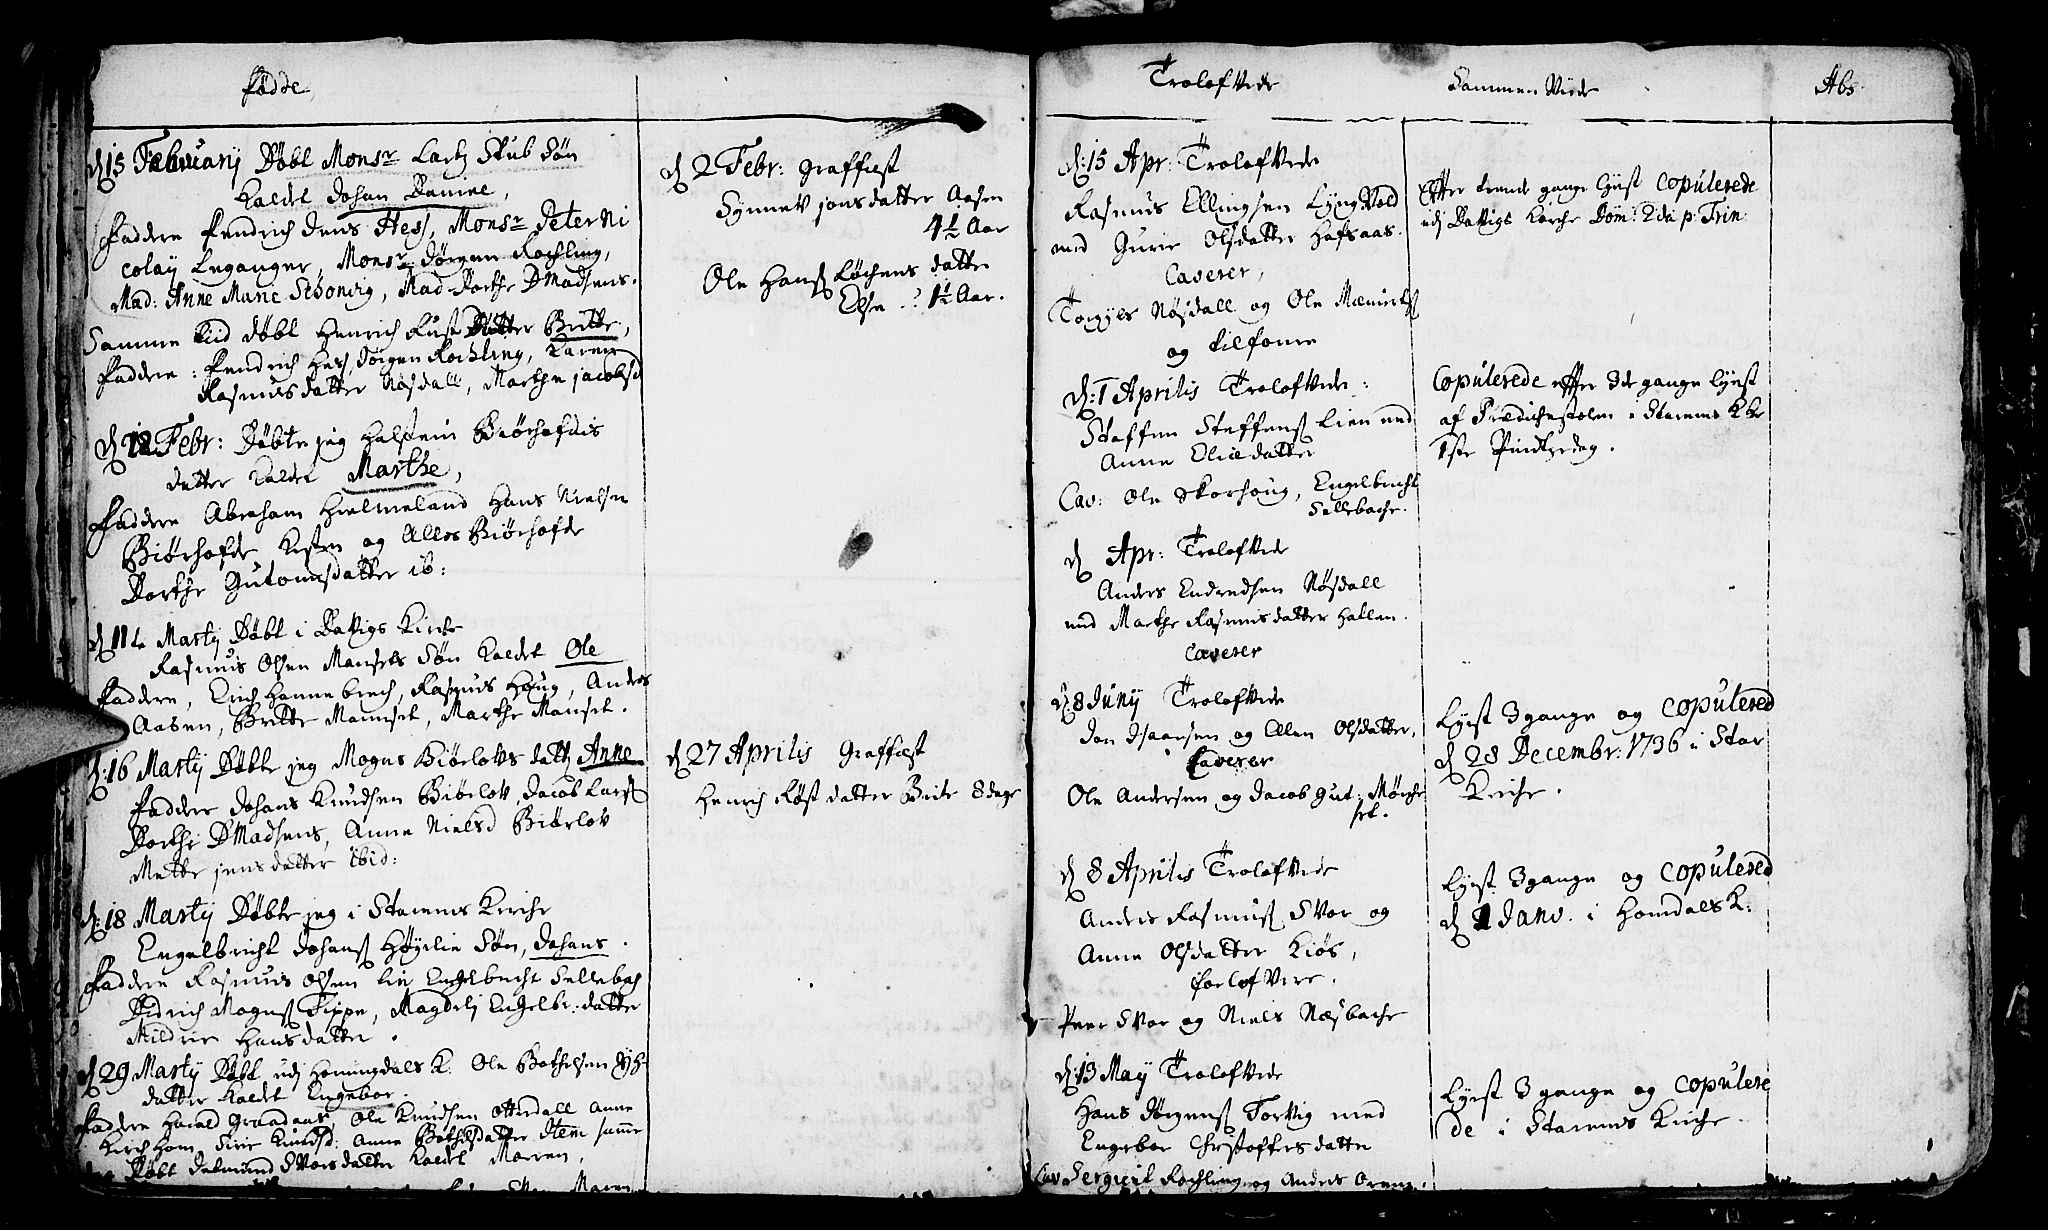 Fødde
d 15 Februarij Døbt Monsr Lartz Stub Søn
kaldet Johan Daniel,
Faddere Fendrich Jens Hess, Monsr Peter Ni
colaij Leganger, Monsr Jørgen Rechling,
Mad: Anne Marie Schonevig, Mad Dorthe DMadsens.
Samme tiid døbt Henrich Rust Datter Britte,
Faddere: Fendrich Hess, Jørgen Rechling, Karen
Rasmusdatter Nøsdall, Marthe jacobsd
d 12 Febr: Døbte jeg Halsten Biørhofdis
datter kaldet Marthe,
Faddere Abraham Hielmeland Hans Nielsen
Biørhofde, Kisten og Alles Biørhofde
Dorthe Gutormsdatter ib:
d 11te Martij Døbt i Davigs Kirke
Rasmus Olsen Mansets Søn kaldet Ole
Faddere, Erich Hannebrech, Rasmus Houg, Anders
Aasen, Britte Manset, Marthe Manset.
d: 16 Martij Døbte jeg Mogns Biørlovs datt Anne
Faddere Johans Knudsen Biørlov, Jacob Lars
Dorthe DMadsens, Anne Nielsd Biørlov
Mette jensdatter ibid:
d: 18 Martij Døbte jeg i Starens Kirche
Engelbricht Johans Høyelie Søn, Johans.
Faddere Rasmus Olsen Lie Engelbrecht Sellebach
Didrich Mogns Tippe, Magdeli Engelbr: datter
Mildrie Hansdatter.
d 29 Martij Døbt udj Homingdals K: Ole Bothelsen
datter kaldet Engebor.
Faddere Harald Graadaas, Ole Knudsen Otterdall Anne
Kirchhorn Sirie Knudsd: Anne Bothelsdatter Item samme
Døbt Svorsdatter kaldet Marren,
d 2 Febr: Graffæst
Synnev jonsdatter Aasen
4½ Aar
Ole Hans Løchens datter
Else : 1½ Aar.
d 27 Aprilis Graffæst
Henrich Røst datter Brite 8 dage
Trolofvede
d: 15 Apr: Trolofvede
Rasmus Ellingsen Lyngvold
med Gurie Olsdatter Hafsaas.
Caverer,
Torgyls Nøsdall og Ole
og
d: 1 Aprilis Trolofvede:
Steffen Steffens Lien med
Anne Oliedatter
Cav: Ole Skorhoug, Engelbrecht
Sellebache.
d Apr: Trolofvede
Anders Endredsen Nøsdall
med Marthe Rasmusdatter Hallen.
Caverer
d: 8 Junij Trolofvede
Jon Isaacsen og Ellen Olsdatter,
Caverer
Ole Andersen og Jacob Gut: Mørche
set.
d 8 Aprilis Trolofvede
Anders Rasmus Svor og
Anne Olsdatter Kiøs,
forlofvere.
Peer Svor og Niels Næsbache
d: 13 May Trolofvede
Hans Jørgens Torvig med
Engebor Christoffersdatter
Cav: Sergiant Rechling og Anders
Sammen Viede
Efter trende gange lyst copulerede
udj Davigs Kirche Dom: 2da p: Trin
Copulerede efter 3de gange lyst
af Prædichestolen i Starens Kke
1ste Pindtzedag.
Lyst 3 gange og copulered
d 28 Decembr: 1736 i Star
Kirche.
Lyst 3 gange og copulered
d 1 Janv. i Homdals K:
Lyst 3 gange og copulere
de i Starens Kirche
Abs